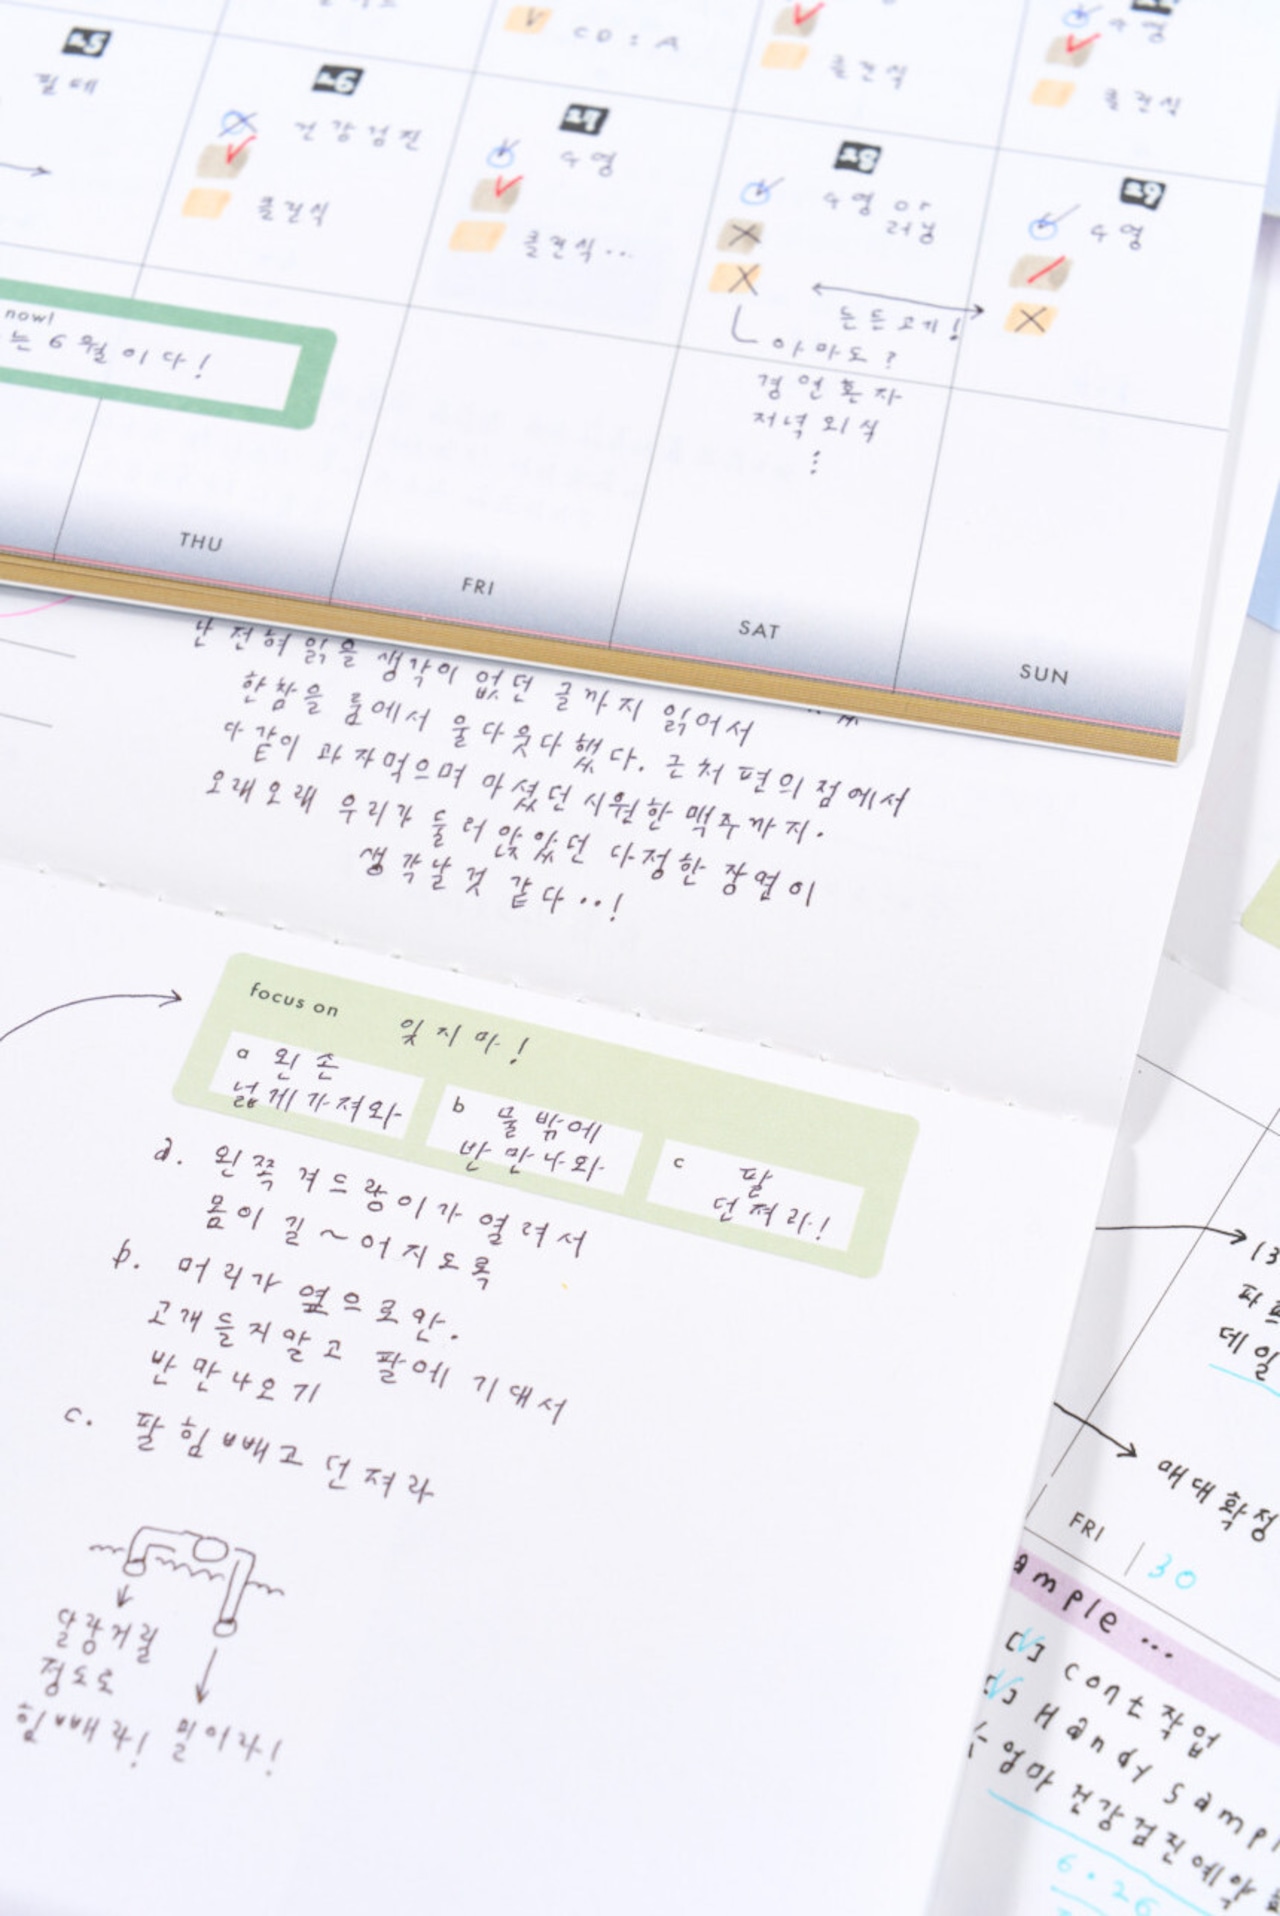 CD : A
클린식
수영
클린식
25
필테
26
건강검진
클린식
27
수영
클린식..
28
수영 or
러닝
29
수영
든든고기!
아마도?
경언혼자
저녁 외식
now!
는 6월이다!
THU
FRI
SAT
SUN
난 전혀 읽을 생각이 없던 글까지 읽어서
한참을 룸에서 울다웃다했다. 근처 편의점에서
다같이 과자먹으며 마셨던 시원한 맥주까지.
오래오래 우리가 둘러앉았던 다정한 장면이
생각날것 같다..!
focus on 잊지마!
a 왼손
넓게가져와
b 물밖에
반만나와
c 팔
던져라!
a. 왼쪽 겨드랑이가 열려서
몸이 길~어지도록
b. 머리가 옆으로만.
고개들지말고 팔에 기대서
반만나오기
c. 팔힘빼고 던져라
달랑거릴
정도로
힘빼라!
밀어라!
데일
매대확정
FRI
30
ample ...
[v] cont작업
[v] Handy sampl
엄마 건강검진예약
6.26